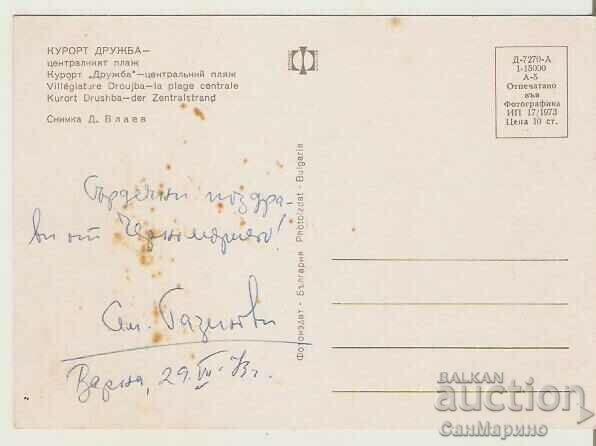 КУРОРТ ДРУЖБА—
централният плаж
Курорт „Дружба"—центральний пляж
Villégiature Droujba—la plage centrale
Kurort Drushba—der Zentralstrand
Снимка Д. Влаев
Д-7270-А
1-15000
А-5
Отпечатано
във
Фотографика
ИП 17/1973
Цена 10 ст.
Фотоиздат - България Photoizdat - Bulgaria
Сърдечни поздра-
ви от Черноморието!
Варна, 29.VII.73г.
BALKAN
auction
СанМарино